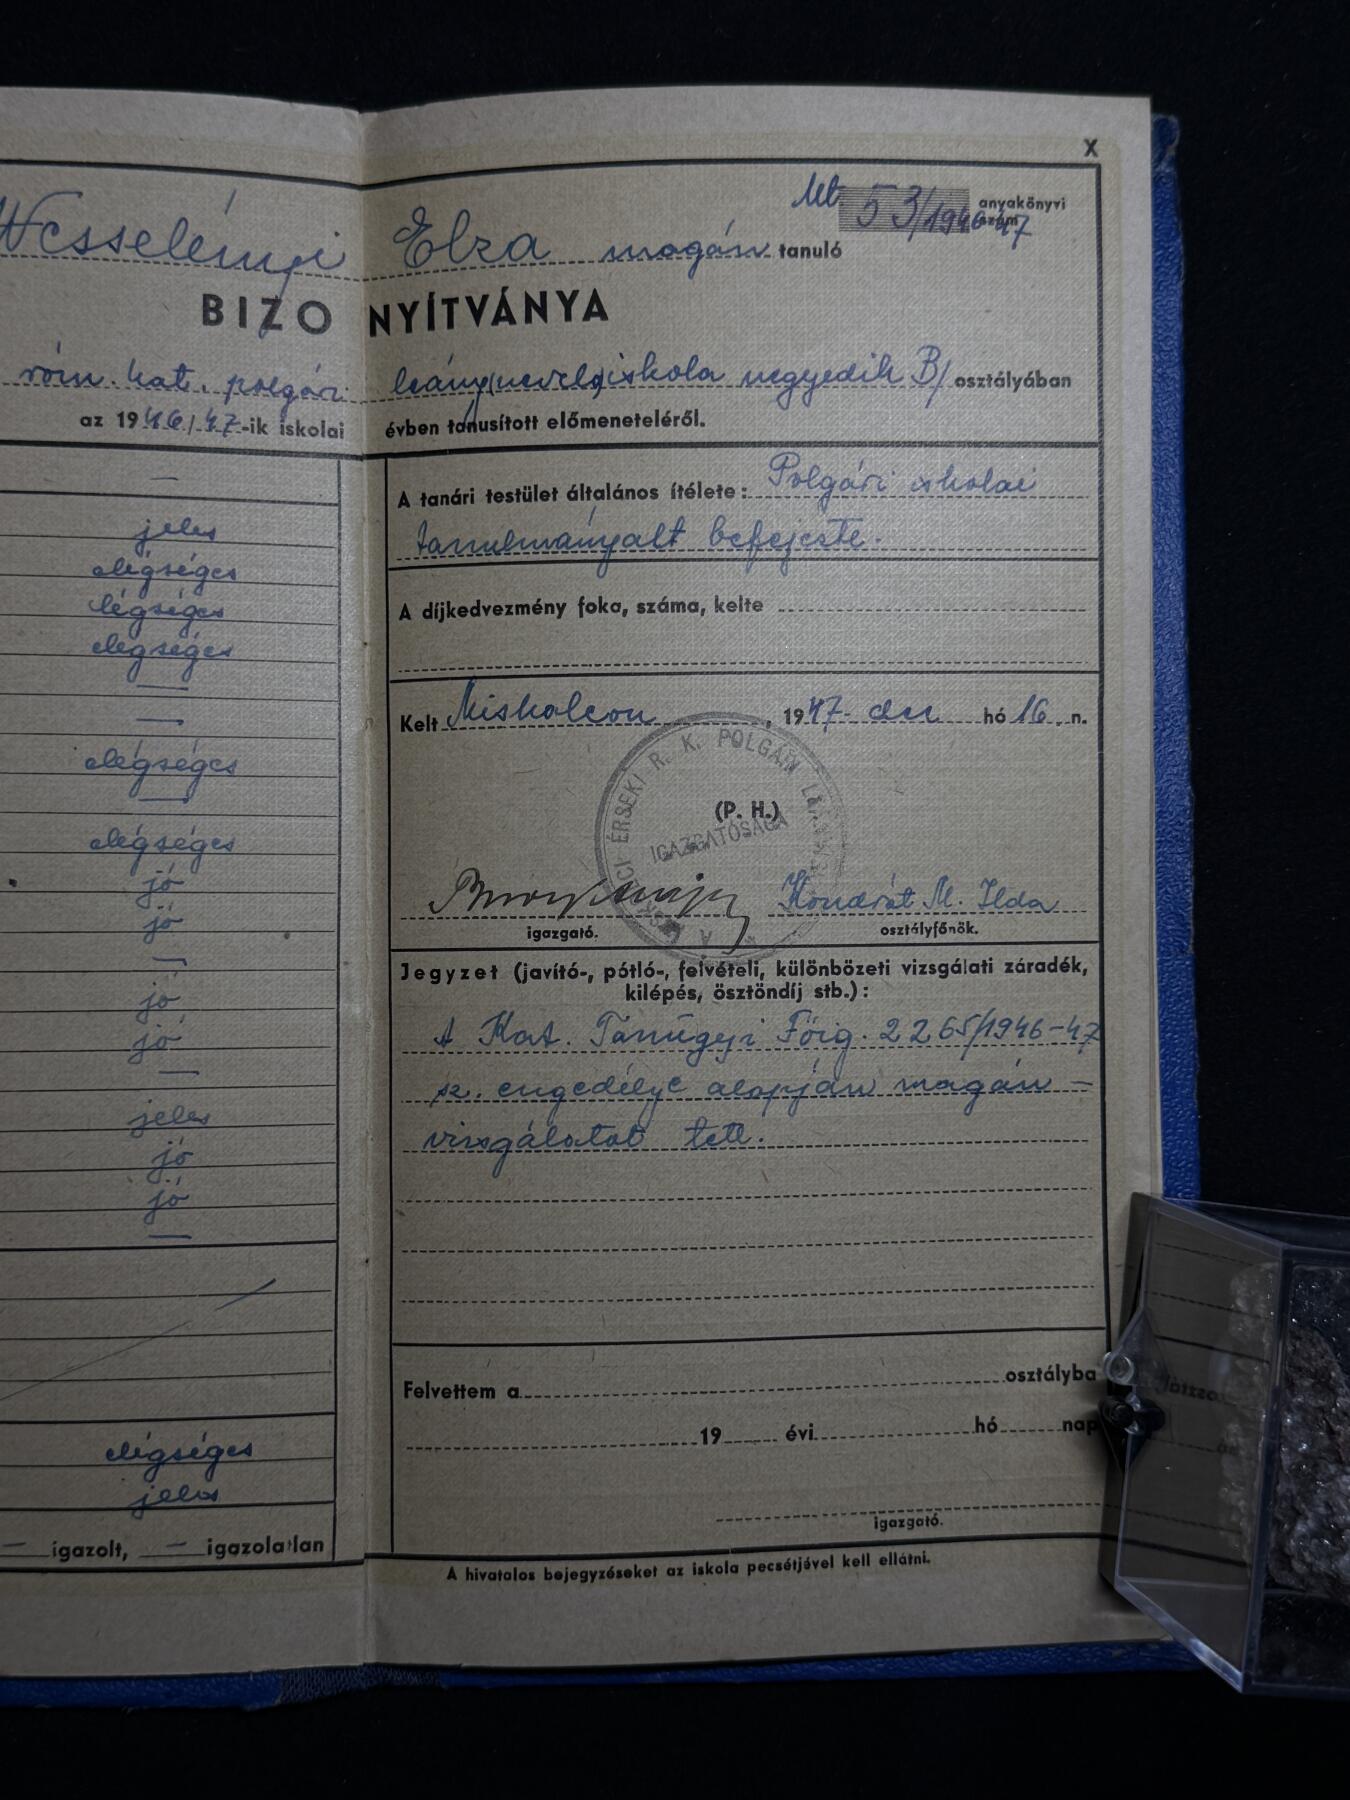 X
Mt. 53/1946-47 anyakönyvi szám
Wesselényi Elza magán tanuló
BIZONYÍTVÁNYA
róm. kat. polgári leány(nevelő)iskola negyedik B) osztályában
az 1946/47-ik iskolai évben tanusított előmeneteléről.
—
jeles
elégséges
elégséges
elégséges
—
—
elégséges
—
elégséges
jó
jó
—
jó
jó
—
jeles
jó
jó
—
elégséges
jeles
— igazolt, — igazolatlan
A tanári testület általános ítélete: Polgári iskolai
tanulmányait befejezte.
A díjkedvezmény foka, száma, kelte
Kelt Miskolcon, 1947. dec hó 16. n.
ÉRSEKI R. K. POLGÁRI
(P. H.)
IGAZGATÓSÁGA
Kondrát M. Ilda
igazgató. osztályfőnök.
Jegyzet (javító-, pótló-, felvételi, különbözeti vizsgálati záradék,
kilépés, ösztöndíj stb.):
A Kat. Tanügyi Főig. 2265/1946-47
sz. engedélye alapján magán-
vizsgálatot tett.
Felvettem a osztályba
19 évi hó nap
igazgató.
A hivatalos bejegyzéseket az iskola pecsétjével kell ellátni.